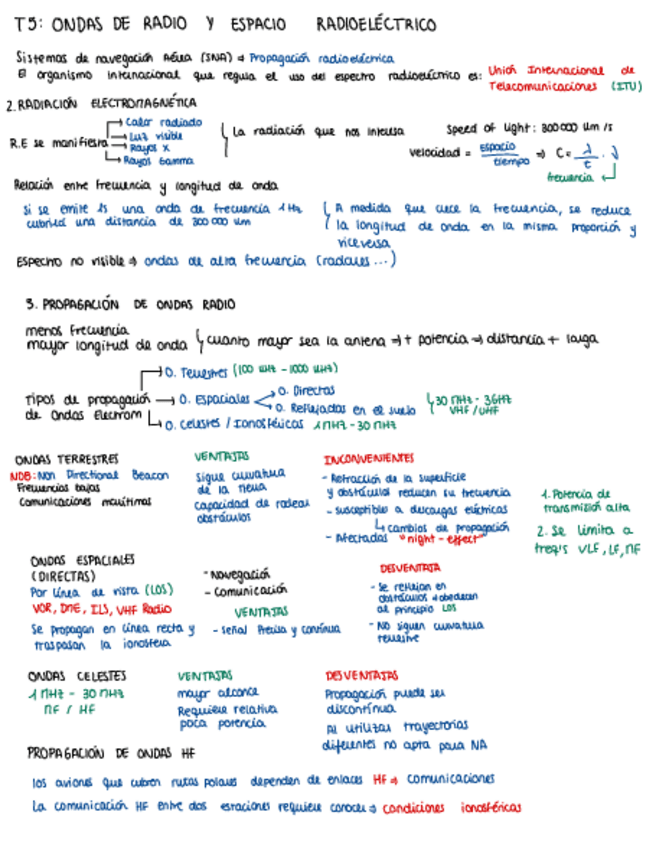 T5: ONDAS DE RADIO Y ESPACIO RADIOELÉCTRICO
Sistemas de navegación Aérea (SNA) → Propagación radioeléctrica
El organismo internacional que regula el uso del espectro radioeléctrico es: Unión Internacional de
Telecomunicaciones (ITU)
2. RADIACIÓN ELECTROMAGNÉTICA
R.E se manifiesta
→ Calor radiado
→ Luz visible
→ Rayos X
→ Rayos Gamma
La radiación que nos interesa
Speed of light: 300000 km/s
velocidad = espacio / tiempo ⇒ C = λ / t · ν
frecuencia
Relación entre frecuencia y longitud de onda
Si se emite 1s una onda de frecuencia 1Hz
cubrirá una distancia de 300000 km
A medida que crece la frecuencia, se reduce
la longitud de onda en la misma proporción y
viceversa
Espectro no visible → ondas de alta frecuencia (radares...)
3. PROPAGACIÓN DE ONDAS RADIO
menos frecuencia
mayor longitud de onda
cuanto mayor sea la antena → + potencia → distancia + larga
Tipos de propagación
de Ondas Electrom
→ O. Terrestres (100 kHz - 1000 kHz)
→ O. Espaciales
→ O. Directas
→ O. Reflejadas en el suelo
30 MHz - 3GHz
VHF / UHF
→ O. Celestes / Ionosféricas 1MHz - 30 MHz
ONDAS TERRESTRES
NDB: Non Directional Beacon
Frecuencias bajas
Comunicaciones marítimas
VENTAJAS
Sigue curvatura
de la tierra
capacidad de rodear
obstáculos
INCONVENIENTES
- Refracción de la superficie
y obstáculos reducen su frecuencia
- susceptible a descargas eléctricas
↳ cambios de propagación
- Afectadas "night-effect"
1. Potencia de
transmisión alta
2. Se limita a
freq's VLF, LF, MF
ONDAS ESPACIALES
(DIRECTAS)
Por línea de vista (LOS)
VOR, DME, ILS, VHF Radio
Se propagan en línea recta y
traspasan la ionosfera
- Navegación
- Comunicación
VENTAJAS
- señal Precisa y continua
DESVENTAJA
- Se reflejan en
obstáculos + obedecen
al principio LOS
- NO siguen curvatura
terrestre
ONDAS CELESTES
1 MHz - 30 MHz
MF / HF
VENTAJAS
mayor alcance
Requiere relativa
poca potencia
DESVENTAJAS
Propagación puede ser
discontinua
Al utilizar trayectorias
diferentes no apta para NA
PROPAGACIÓN DE ONDAS HF
los aviones que cubren rutas polares dependen de enlaces HF → comunicaciones
La comunicación HF entre dos estaciones requiere conocer → condiciones ionosféricas